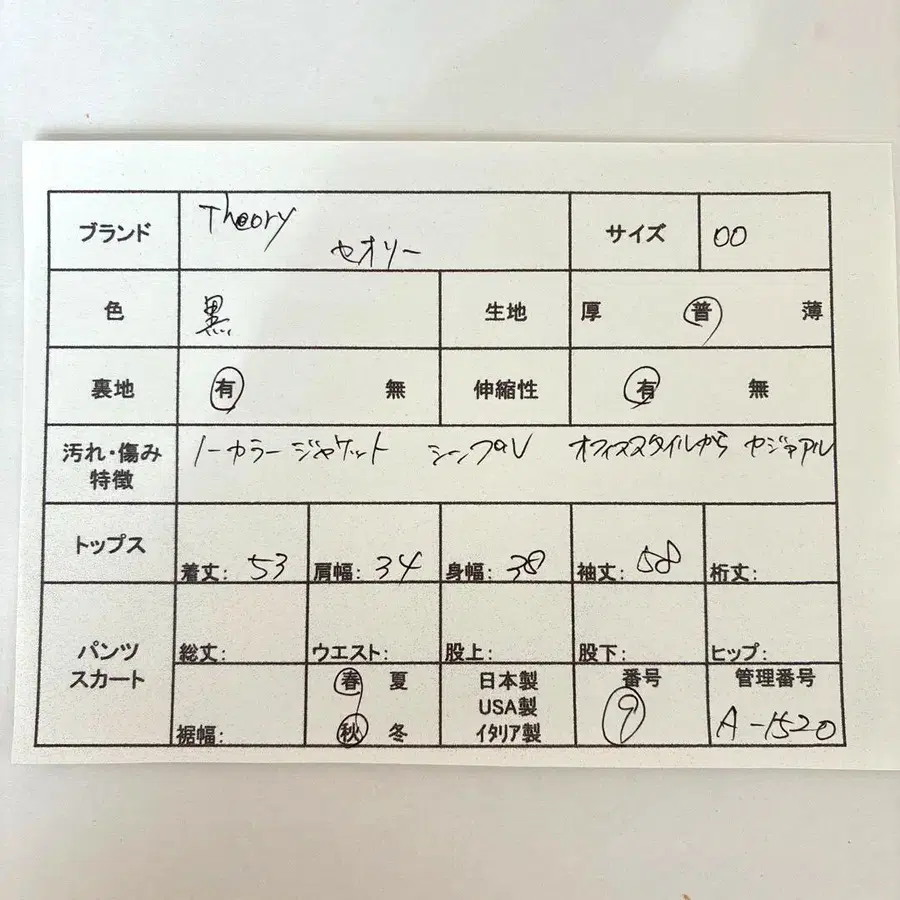 ブランド Theory サイズ 00
セオリー
色 黒 生地 厚 普 薄
裏地 有 無 伸縮性 有 無
汚れ・傷み ノーカラージャケット シンプル オフィススタイルから カジュアル
特徴
トップス 着丈: 53 肩幅: 34 身幅: 38 袖丈: 58 裄丈:
パンツ 総丈: ウエスト: 股上: 股下: ヒップ:
スカート 春 夏 日本製 番号 管理番号
USA製 9 A-1520
裾幅: 秋 冬 イタリア製